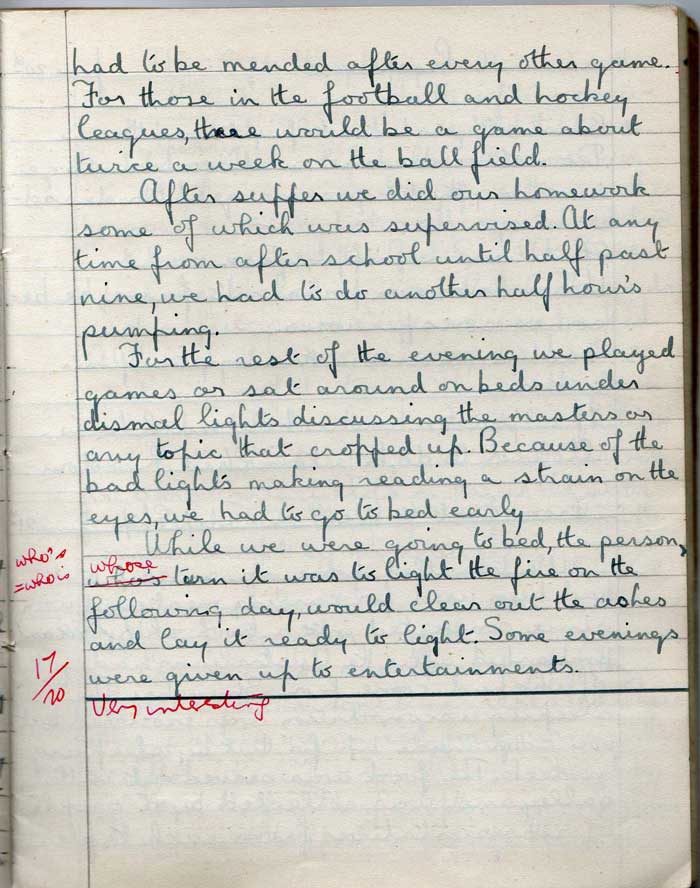 had to be mended after every other game.
For those in the football and hockey
leagues, there would be a game about
twice a week on the ball field.
After supper we did our homework
some of which was supervised. At any
time from after school until half past
nine, we had to do another half hour's
pumping.
For the rest of the evening we played
games or sat around on beds under
dismal lights discussing the masters or
any topic that cropped up. Because of the
bad lights making reading a strain on the
eyes, we had to go to bed early
While we were going to bed, the person,
who's
=who is
whose
who's turn it was to light the fire on the
following day, would clear out the ashes
and lay it ready to light. Some evenings
were given up to entertainments.
17/20
Very interesting